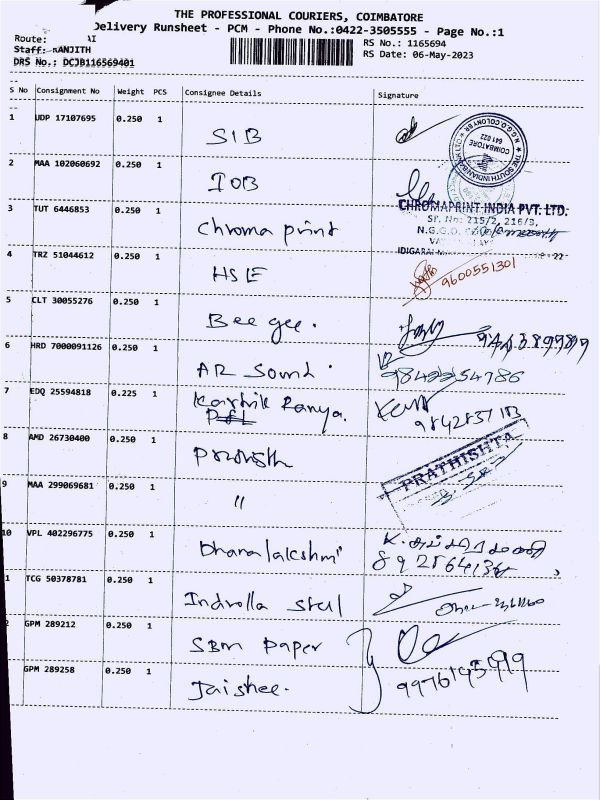 THE PROFESSIONAL COURIERS, COIMBATORE
Delivery Runsheet - PCM - Phone No.:0422-3505555 - Page No.:1
Route: AI
RS No.: 1165694
Staff: RANJITH
RS Date: 06-May-2023
DRS No.: DCJB116569401
S No Consignment No Weight PCS Consignee Details Signature
1 UDP 17107695 0.250 1 SIB
2 MAA 102060692 0.250 1 IOB
3 TUT 6446853 0.250 1 Chroma print
CHROMAPRINT INDIA PVT. LTD.
SF. No: 215/2, 216/9,
N.G.G.O.
4 TRZ 51044612 0.250 1 HSE 9600551301
5 CLT 30055276 0.250 1 Bee gee.
6 HRD 7000091126 0.250 1 AR Sound.
7 EDQ 25594818 0.225 1 Karthik Ranya.
8 AMD 26730400 0.250 1
PRATHISHTA
9 MAA 299069681 0.250 1 "
10 VPL 402296775 0.250 1 Dhanalakshmi
1 TCG 50378781 0.250 1
2 GPM 289212 0.250 1 SBM Paper
GPM 289258 0.250 1 Jaishee.